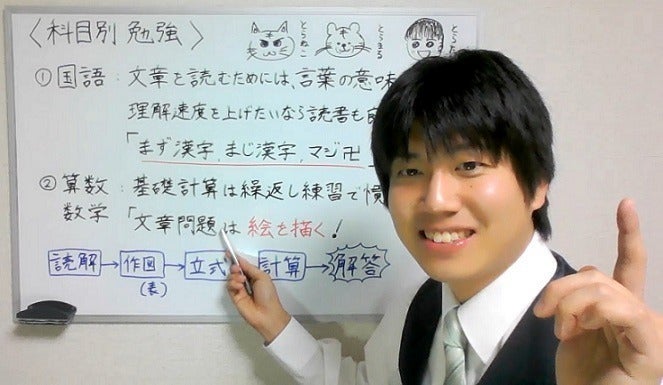 〈科目別 勉強〉
とらねこ
とらまる
① 国語：文章を読むためには、言葉の意味
理解速度を上げたいなら読書も
「まず漢字、まじ漢字、マジ卍」
② 算数 数学：基礎計算は繰返し練習で慣
「文章問題は 絵を描く！
読解→作図(表)→立式 計算→解答